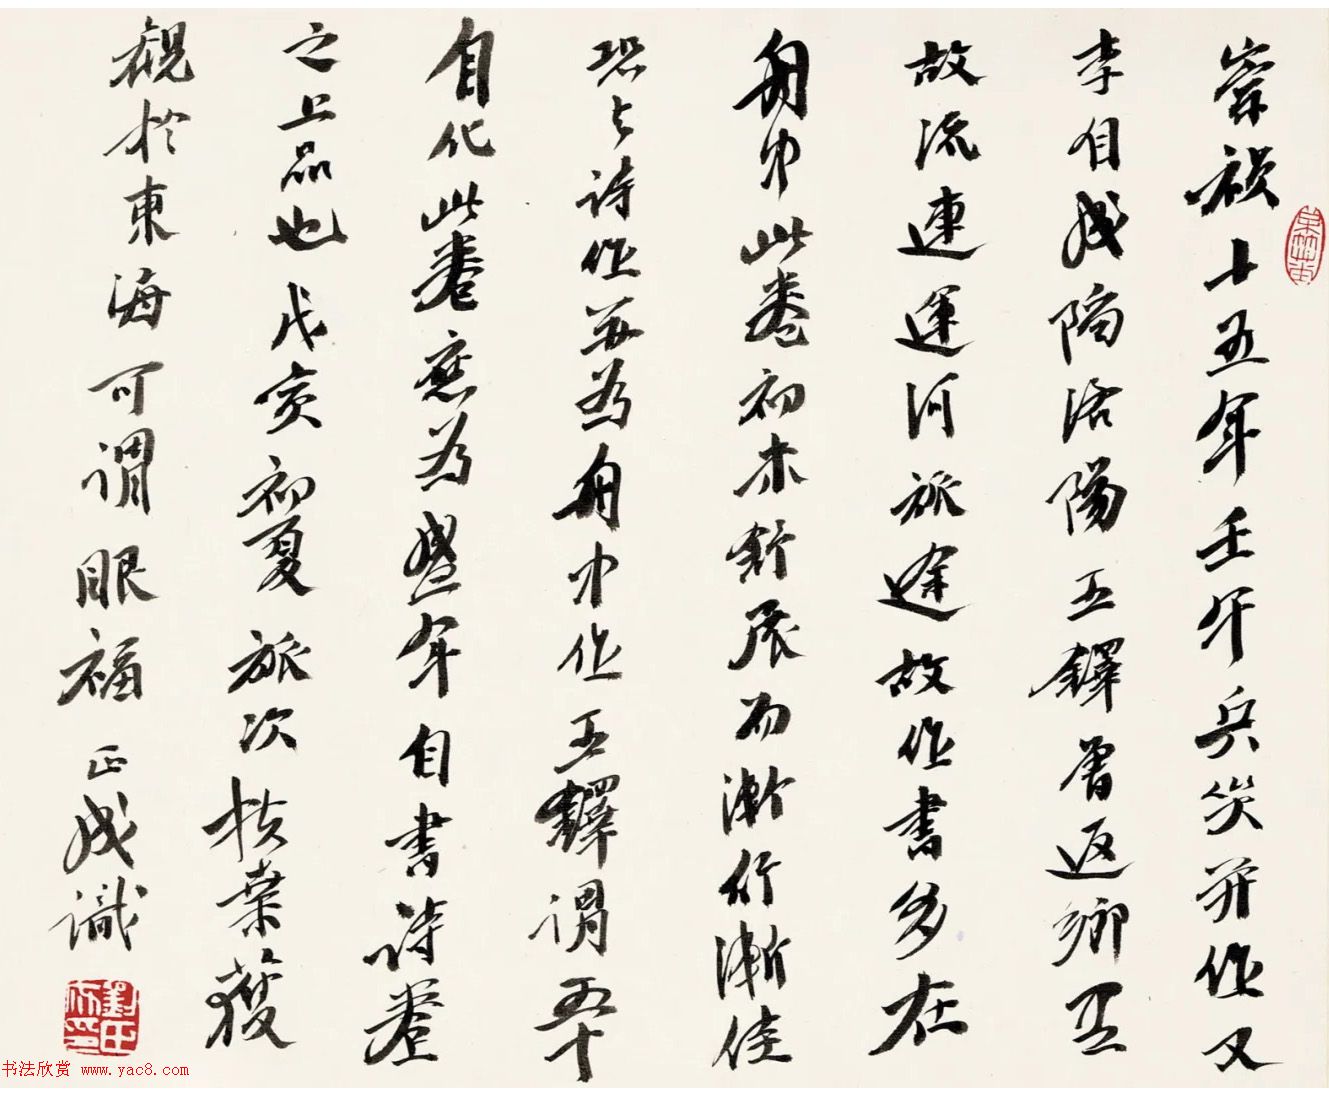 崇禎十五年壬午兵災并作又
李自成陷洛陽王鐸曾返鄉
故流連運河旅途故作書多在
舟中此卷初未舒展而漸行漸佳
恐與詩作并為舟中作王鐸謂五十
自化此卷應為盛年自書詩卷
之上品也戊亥初夏旅次扶桑獲
觀於東海可謂眼福正成識
书法欣赏 www.yac8.com